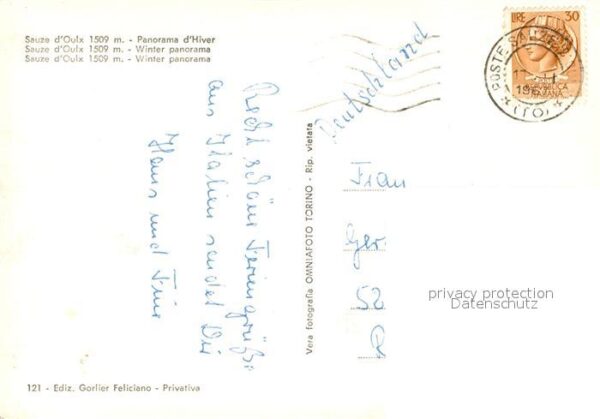 Sauze d'Oulx 1509 m. - Panorama d'Hiver
Sauze d'Oulx 1509 m. - Winter panorama
Sauze d'Oulx 1509 m. - Winter panorama
Deutschland
LIRE 30
POSTE SAUZE
(TO)
Recht schöne Feriengrüße
aus Italien sendet Dir
Hans und
Vera fotografia OMNIAFOTO TORINO - Rip. vietata
Frau
Ger
52
privacy protection
Datenschutz
121 - Ediz. Gorlier Feliciano - Privativa